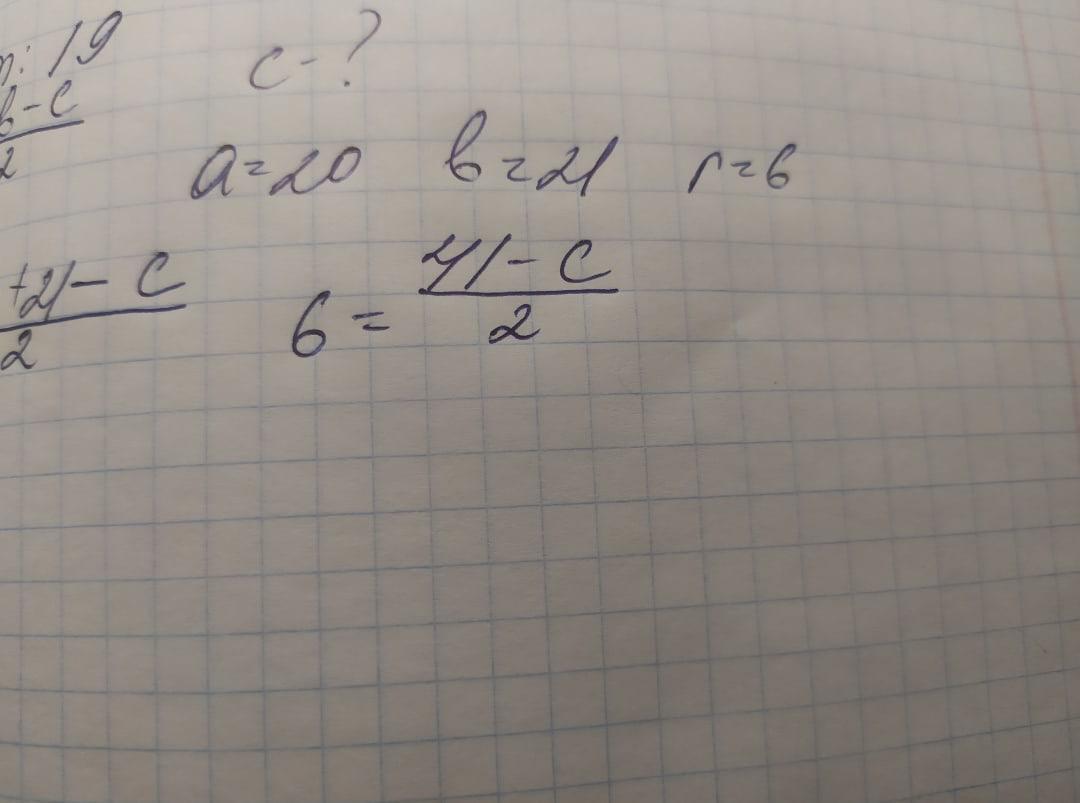 : 19
c - ?
b - c
2
a = 20 b = 21 r = 6
+21 - c
2
6 = 41 - c
2